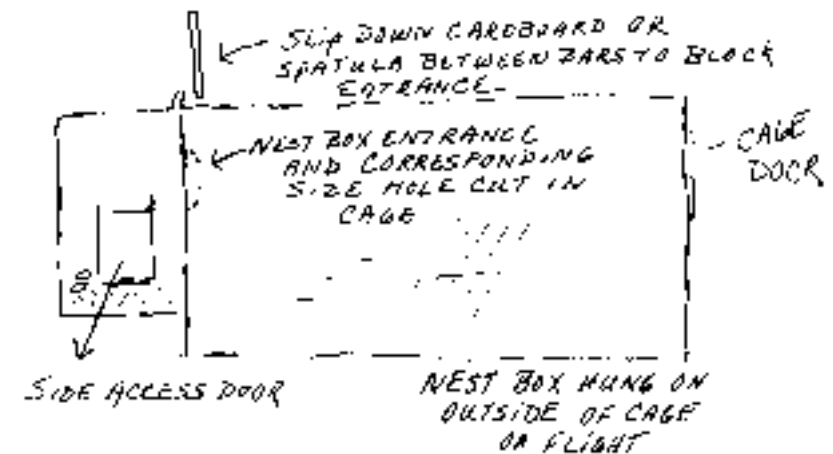 SLIP DOWN CARDBOARD OR
SPATULA BETWEEN BARS TO BLOCK
ENTRANCE-
NEST BOX ENTRANCE
AND CORRESPONDING
SIZE HOLE CUT IN
CAGE
CAGE
DOOR
SIDE ACCESS DOOR
NEST BOX HUNG ON
OUTSIDE OF CAGE
OR FLIGHT